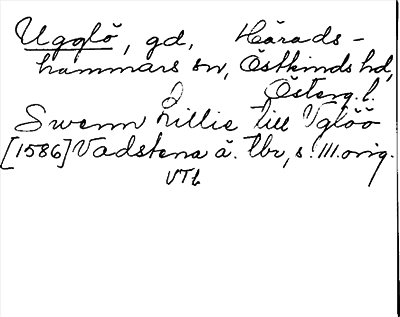 Ugglö, gd, Härads-
hammars sn, Östkinds hd,
Österg. l.
Swenn Lillie till Vglöö
[1586] Vadstena ä. tbr, s. 111. orig.
VTb